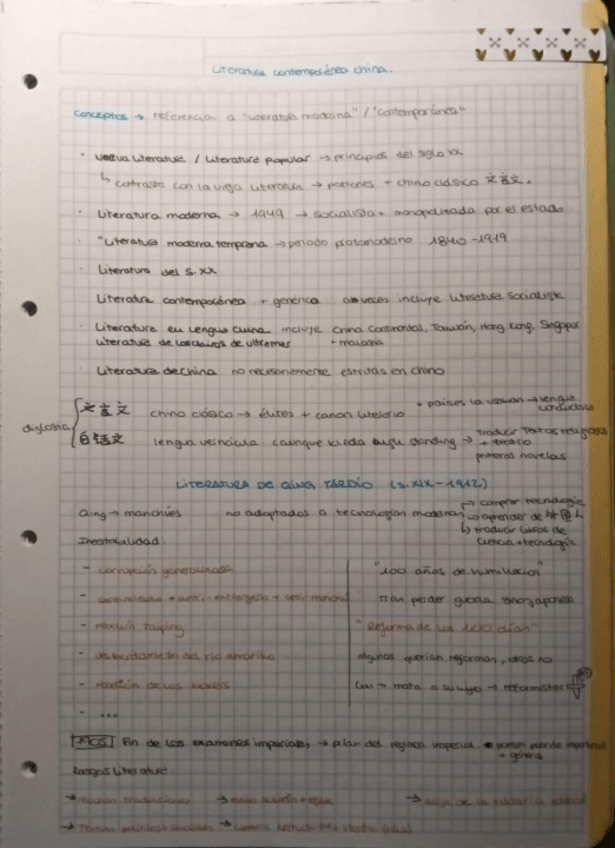 Literatura contemporánea china.
Conceptos → referencia a "literatura moderna" / "contemporánea"
· Nueva Literatura / Literatura popular → principios del siglo XX
↳ contraste con la vieja literatura → + chino clásico 文言文.
· Literatura moderna → 1949 → socialista + monopolizada por el estado
· "Literatura moderna temprana → periodo protomoderno 1840-1919
· Literatura del s. XX
· Literatura contemporánea + genérica a veces incluye literatura socialista
· Literatura en Lengua China incluye China Continental, Taiwán, Hong Kong, Singapur
Literatura de los chinos de ultramar + malasia
· Literatura de China no necesariamente escritas en chino
diglosia
文言文 chino clásico → élites + canon literario + países la usaban → lengua
白话文 lengua vernácula aunque kinda high standing → traducir textos religiosos
+ teatro
primeras novelas
LITERATURA DE QING TARDÍO (s. XIX - 1912)
Qing → manchúes no adaptados a tecnologías modernas
→ comprar tecnología
→ aprender de 外国人
↳ traducir libros de
ciencia + tecnología
Inestabilidad:
- corrupción generalizada
- + anti-extranjero + anti-manchú
- rebelión Taiping
- desbordamiento del río amarillo
- rebelión de los boxers
- ...
"100 años de humillación"
Tran perder guerra sinojaponesa
"Reforma de los 100 días"
algunos querían reformas, otros no
Cixi → mata a su hijo → reformistas
1905 Fin de los exámenes imperiales → pilar del régimen imperial
+ general
Rasgos Literatura:
→ muchas traducciones
→ auge de la industria editorial
→ Temas políticos + sociales